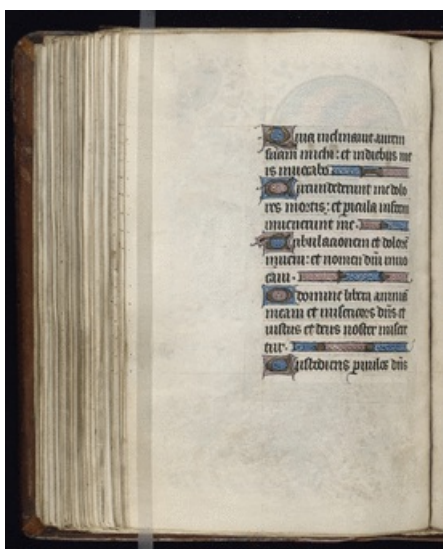 Quia inclinavit aurem
suam michi: et in diebus me
is invocabo
Circundederunt me dolo
res mortis: et picula inferni
invenerunt me.
Tribulacionem et dolorē
inveni: et nomen dñi invo
cavi.
O domine libera animā
meam et misericors dñs et
iustus et deus noster miser
tur.
Custodiens pvulos dñs